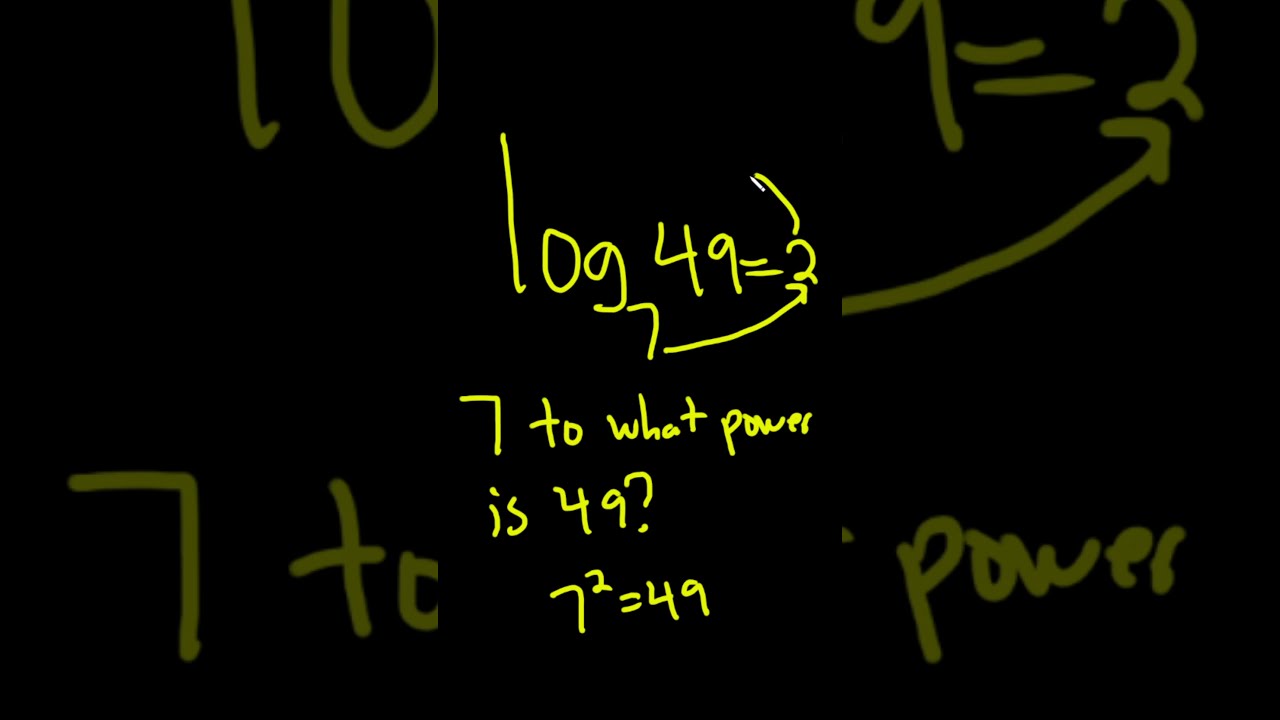 log₇ 49=2
7 to what power
is 49?
7²=49